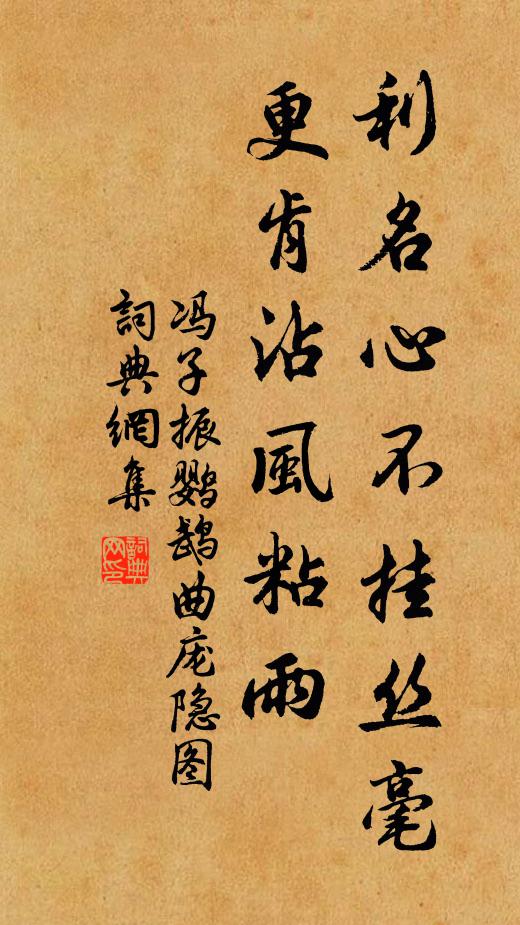 利名心不挂丝毫
更肯沾風粘雨
冯子振鹦鹉曲庞隐图
詞典網集
詞典
网印